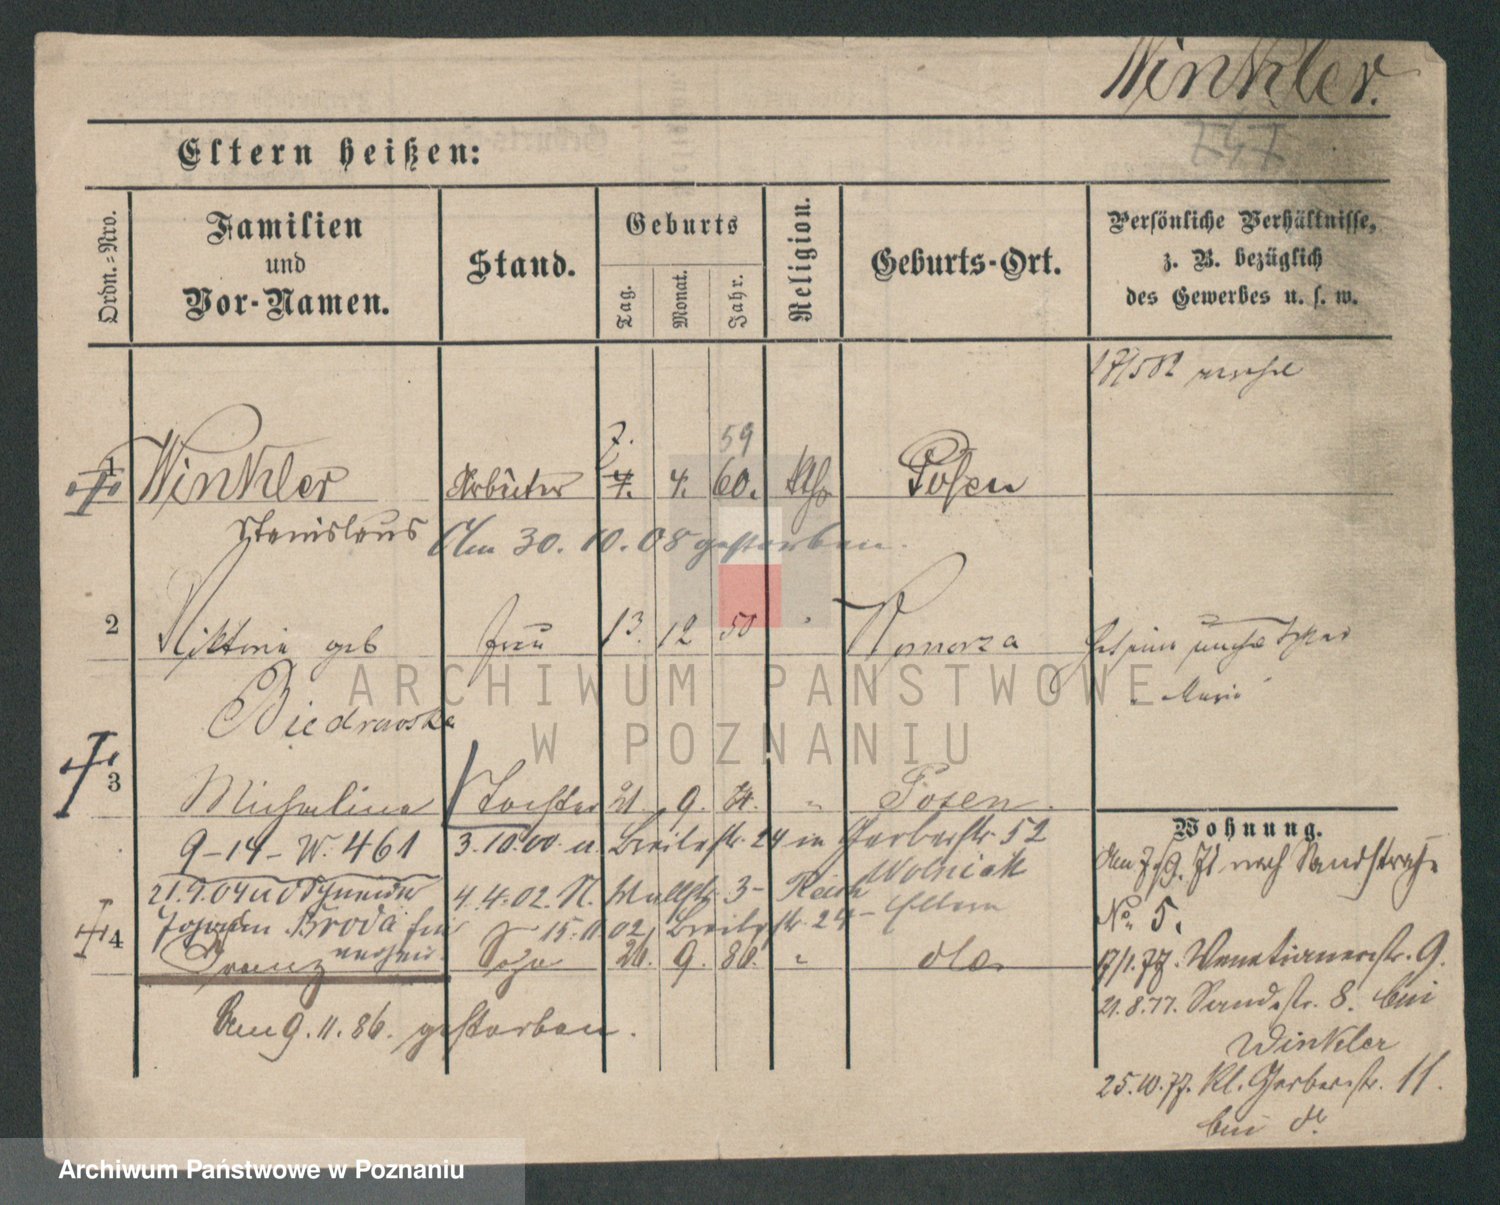 Winkler.
747
Eltern heißen:
Ordn.-Nro.
Familien
und
Vor-Namen.
Stand.
Geburts
Tag.
Monat.
Jahr.
Religion.
Geburts-Ort.
Persönliche Verhältnisse,
z. B. bezüglich
des Gewerbes u. s. w.
7. 59
1 Winkler Arbeiter 4. 4. 60. Kth Posen
Stanislaus Am 30. 10. 08 gestorben.
2 Viktoria geb Frau 13. 12 50 Pomorza
Maria
ARCHIWUM PAŃSTWOWE
W POZNANIU
3 Michalina Tochter 21. 9. Posen.
9-14- W. 461 3.10.00 u. Breitestr. 24 in Gerberstr 52
Wolniak
21.9.04 4.4.02. N. Wallstr. 3- Eltern
Broda 15.11.02, Breitestr. 24-
4 Franz Sohn 26. 9. 86. " do.
Am 9. 11. 86. gestorben.
Wohnung.
den nach Sandstraße
No. 5.
17/1. 77. Venetianerstr. 9.
21.8.77. Sandstr. 8. bei
Winkler
25.10.77. Kl. Gerberstr. 11.
bei do.
Archiwum Państwowe w Poznaniu